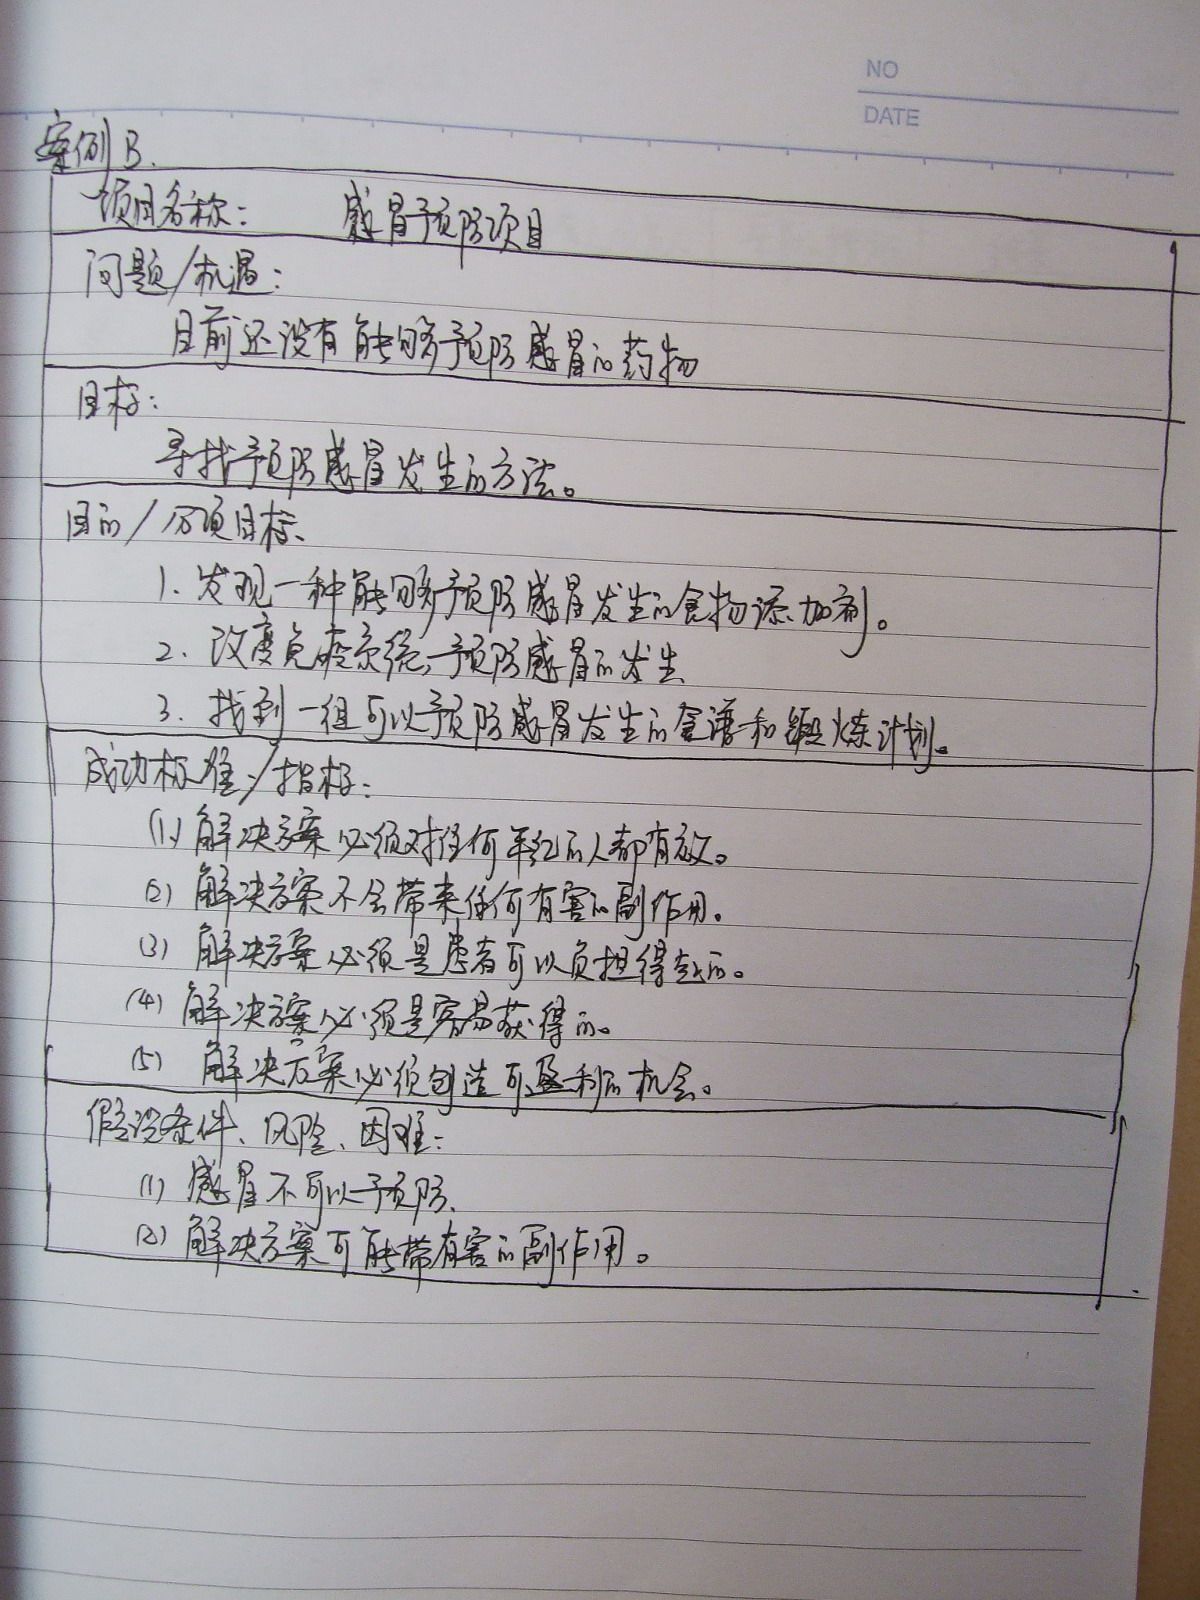 NO
DATE
案例B.
项目名称： 感冒预防项目
问题/机遇：
目前还没有能够预防感冒的药物
目标：
寻找预防感冒发生的方法。
目的/分项目标、
1. 发现一种能够预防感冒发生的食物添加剂。
2. 改变免疫系统，预防感冒的发生
3. 找到一组可以预防感冒发生的食谱和锻炼计划。
成功标准/指标：
(1) 解决方案必须对任何年纪的人都有效。
(2) 解决方案不会带来任何有害的副作用。
(3) 解决方案必须是患者可以负担得起的。
(4) 解决方案必须是容易获得的。
(5) 解决方案必须创造可盈利的机会。
假设条件、风险、困难：
(1) 感冒不可以预防.
(2) 解决方案可能带有害的副作用。